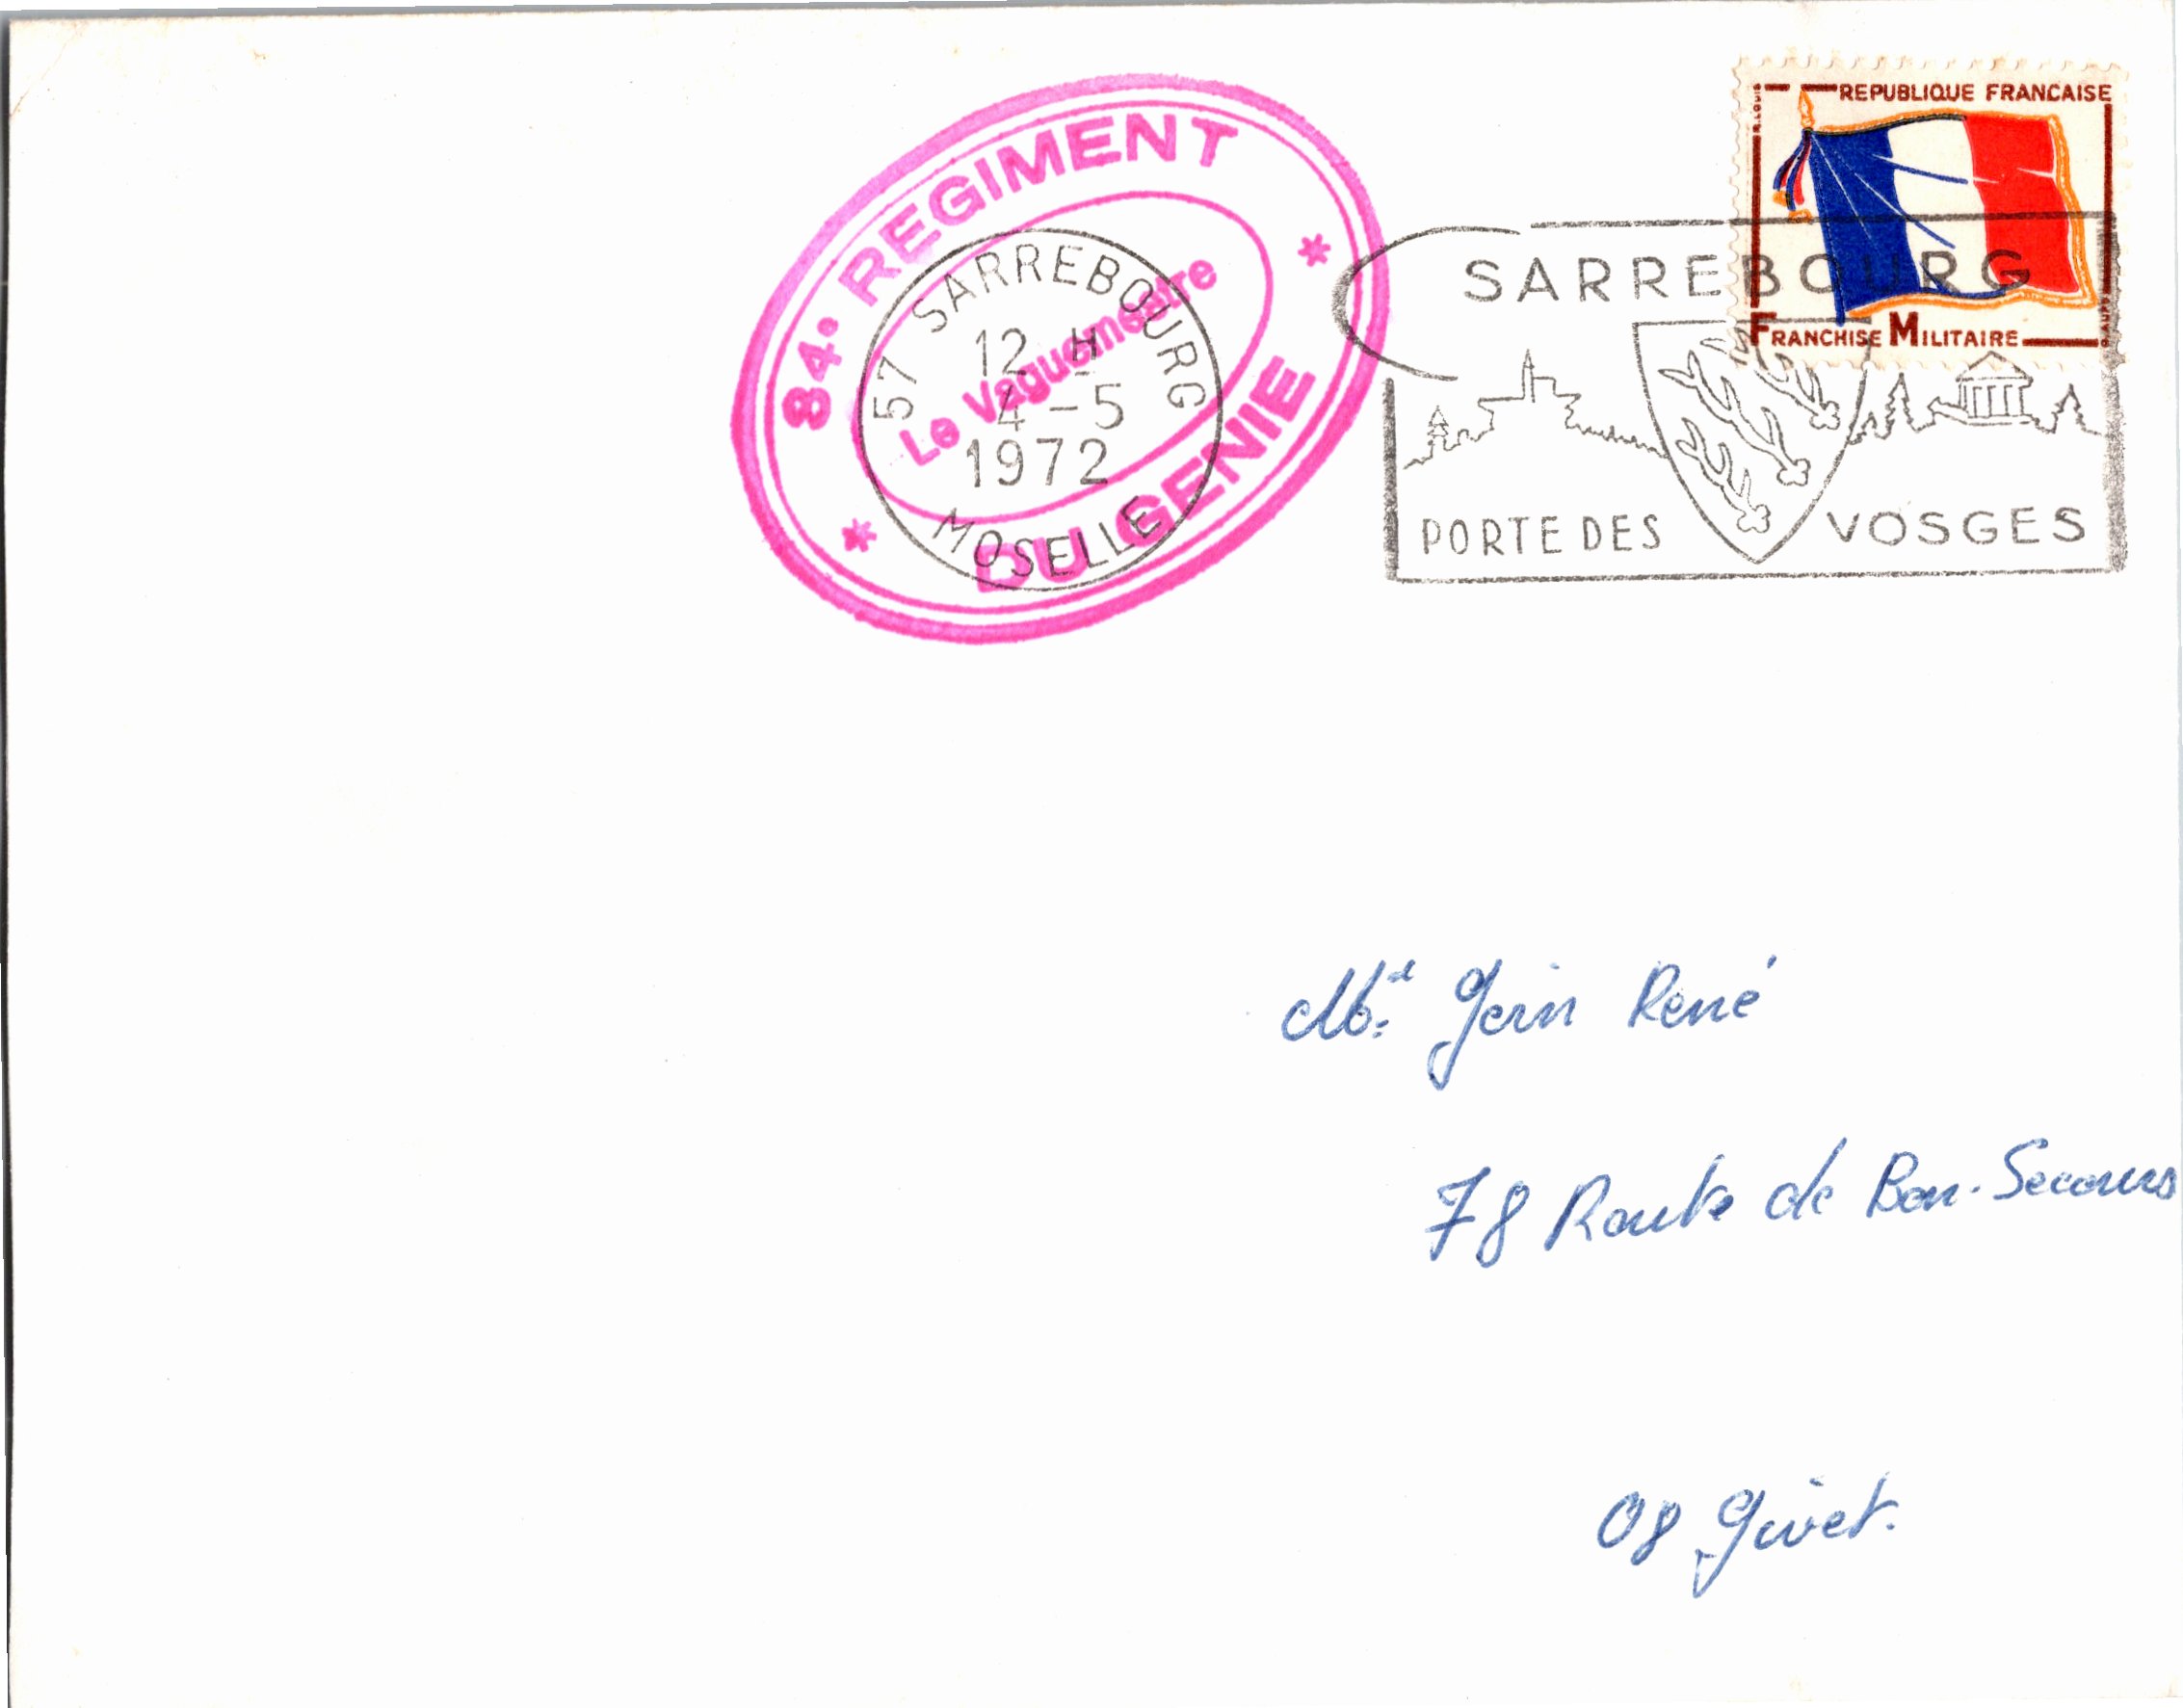 84e REGIMENT
Le Vaguemestre
DU GENIE
57 SARREBOURG
12 H
4 - 5
1972
MOSELLE
REPUBLIQUE FRANCAISE
FRANCHISE MILITAIRE
SARREBOURG
PORTE DES VOSGES
René
78 Route de Bon-Secours
08 Givet.